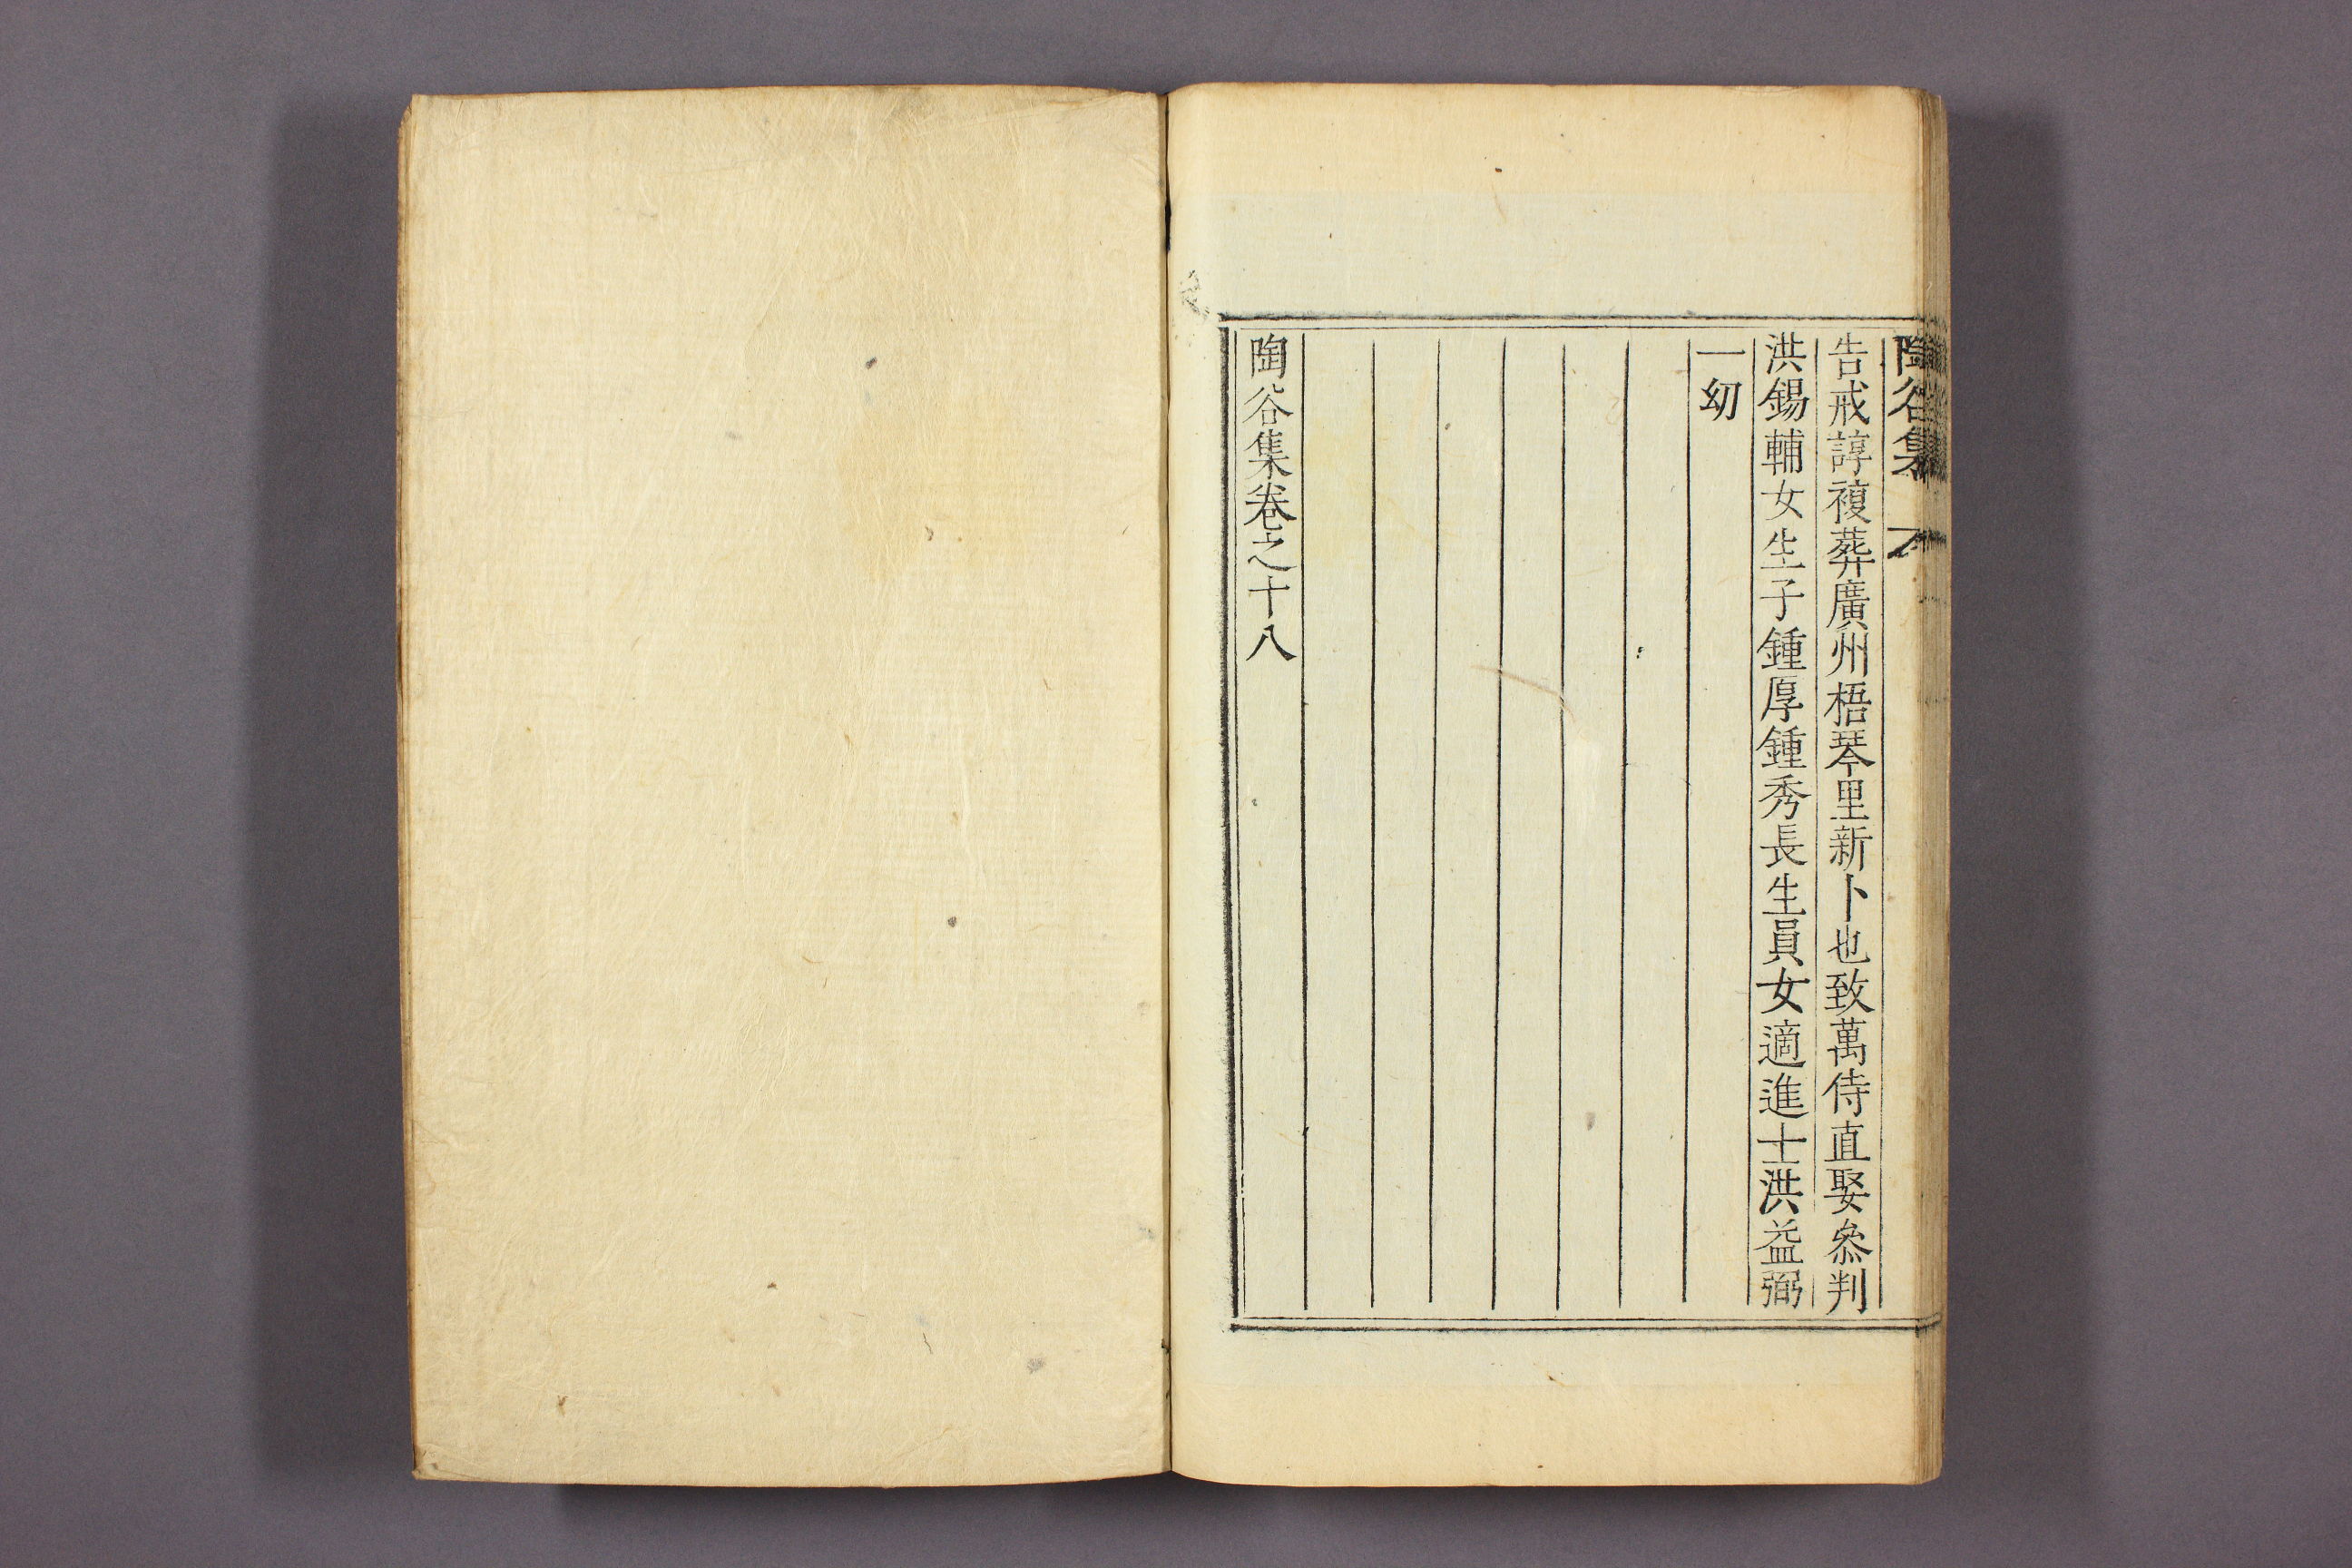 陶谷集
告戒諄複葬廣州梧琴里新卜也致萬侍直娶叅判
洪錫輔女生子鍾厚鍾秀長生員女適進士洪益弼
一幼
陶谷集卷之十八